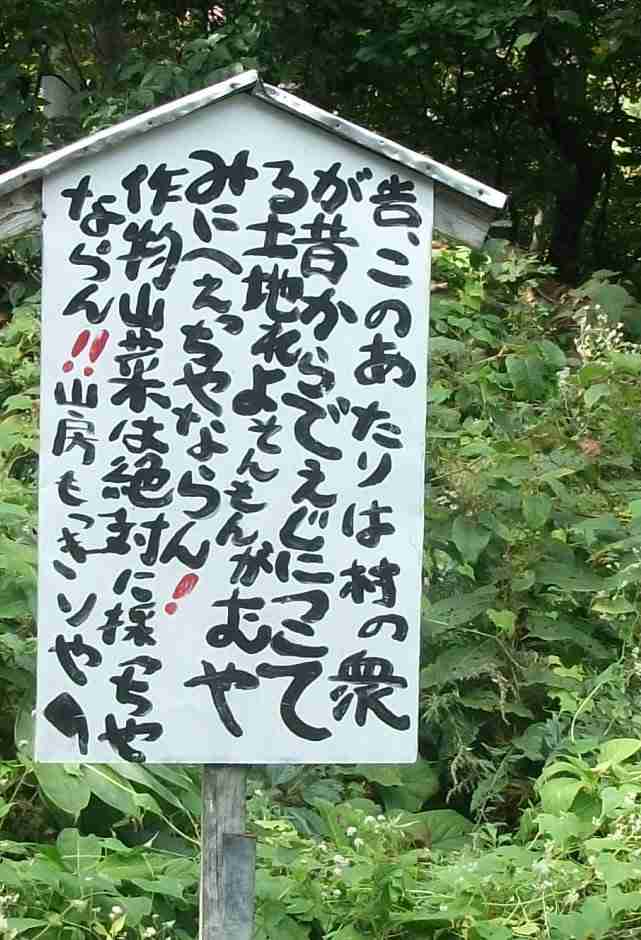 告、このあたりは村の衆
が昔からでえじにつこて
る土地れよそんもんがむや
みにへえっちゃならん!
作物山菜は絶対に採っちゃ
ならん!!山房もっきりや